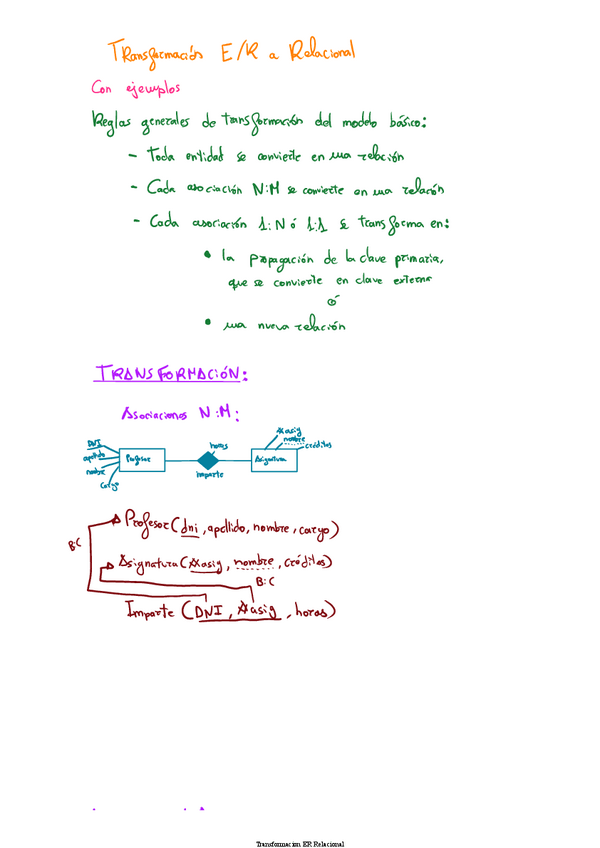 Transformación E/R a Relacional
Con ejemplos
Reglas generales de transformación del modelo básico:
- Toda entidad se convierte en una relación
- Cada asociación N:M se convierte en una relación
- Cada asociación 1:N ó 1:1 se transforma en:
• la propagación de la clave primaria,
que se convierte en clave externa
ó
• una nueva relación
TRANSFORMACIÓN:
Asociaciones N:M:
DNI
apellido
nombre
cargo
Profesor
horas
imparte
Asignatura
#asig
nombre
créditos
Profesor (dni, apellido, nombre, cargo)
B:C
Asignatura (#asig, nombre, créditos)
B:C
Imparte (DNI, #asig, horas)
Transformacion ER Relacional